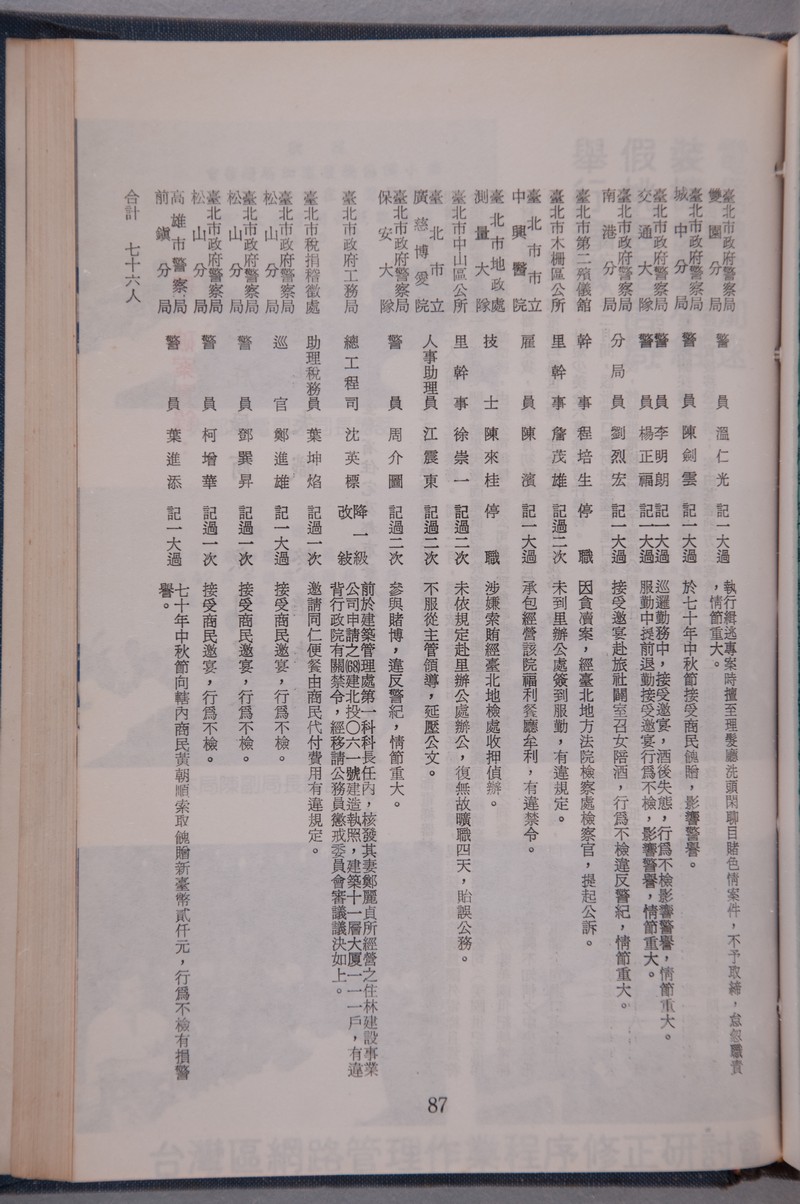 臺北市政府警察局鸞園分局 警員 溫仁光 記一大過 執行緝逃專案時擅至理髮廳洗頭閑聊目賭色情案件，不予取締，怠忽職責，情節重大。
臺北市政府警察局城中分局 警員 陳劍雲 記一大過 於七十年中秋節接受商民餽贈，影響警譽。
臺北市政府警察局交通大隊 警員 李明朗 記一大過 巡邏勤務中，接受邀宴，酒後失態，行爲不檢影響警譽，情節重大。
警員 楊正福 記一大過 服勤中提前退勤接受邀宴行爲不檢，影響警譽，情節重大。
臺北市政府警察局南港分局 分局員 劉烈宏 記一大過 接受邀宴赴旅社闢室召女陪酒，行爲不檢違反警紀，情節重大。
臺北市第二殯儀館 幹事 程培生 停職 因貪瀆案，經臺北地方法院檢察處檢察官，提起公訴。
臺北市木柵區公所 里幹事 詹茂雄 記過二次 未到里辦公處簽到服勤，有違規定。
臺北市立中興醫院 雇員 陳濱 記一大過 承包經營該院福利餐廳牟利，有違禁令。
臺北市地政處測量大隊 技士 陳來桂 停職 涉嫌索賄經臺北地檢處收押偵辦。
臺北市中山區公所 里幹事 徐崇一 記過二次 未依規定赴里辦公處辦公，復無故曠職四天，貽誤公務。
臺北市立廣慈博愛院 人事助理員 江震東 記過二次 不服從主管領導，延壓公文。
臺北市政府警察局保安大隊 警員 周介圖 記過二次 參與賭博，違反警紀，情節重大。
臺北市政府工務局 總工程司 沈英標 降一級改敍 前於建築管理處第一科科長任內，核發其妻鄭麗貞所經營之住林建設事業公司申請之(68)建北投〇六一號建造執照，建築十一層大厦一一一戶，有違背行政院有關禁令，經移請公務員懲戒委員會審議議決如上。
臺北市稅捐稽徵處 助理稅務員 葉坤焰 記過一次 邀請同仁便餐由商民代付費用有違規定。
臺北市政府警察局松山分局 巡官 鄭進雄 記一大過 接受商民邀宴，行爲不檢。
臺北市政府警察局松山分局 警員 鄧巽昇 記過一次 接受商民邀宴，行爲不檢。
臺北市政府警察局松山分局 警員 柯增華 記過一次 接受商民邀宴，行爲不檢。
高雄市警察局前鎭分局 警員 葉進添 記一大過 七十年中秋節向轄內商民黃朝順索取餽贈新臺幣貳仟元，行爲不檢有損警譽。
合計 七十六人
87